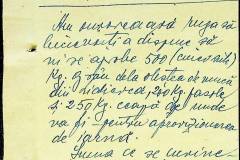 Am onoarea a vă ruga să
binevoiți a dispune să
ni se aprobe 500 (cincisute)
Kg. grâu de la obștea de muncă
din 240 Kg. fasole
și 250 Kg. ceapă de unde
va fi pentru aprovizionarea
de iarnă.
Suma ce se